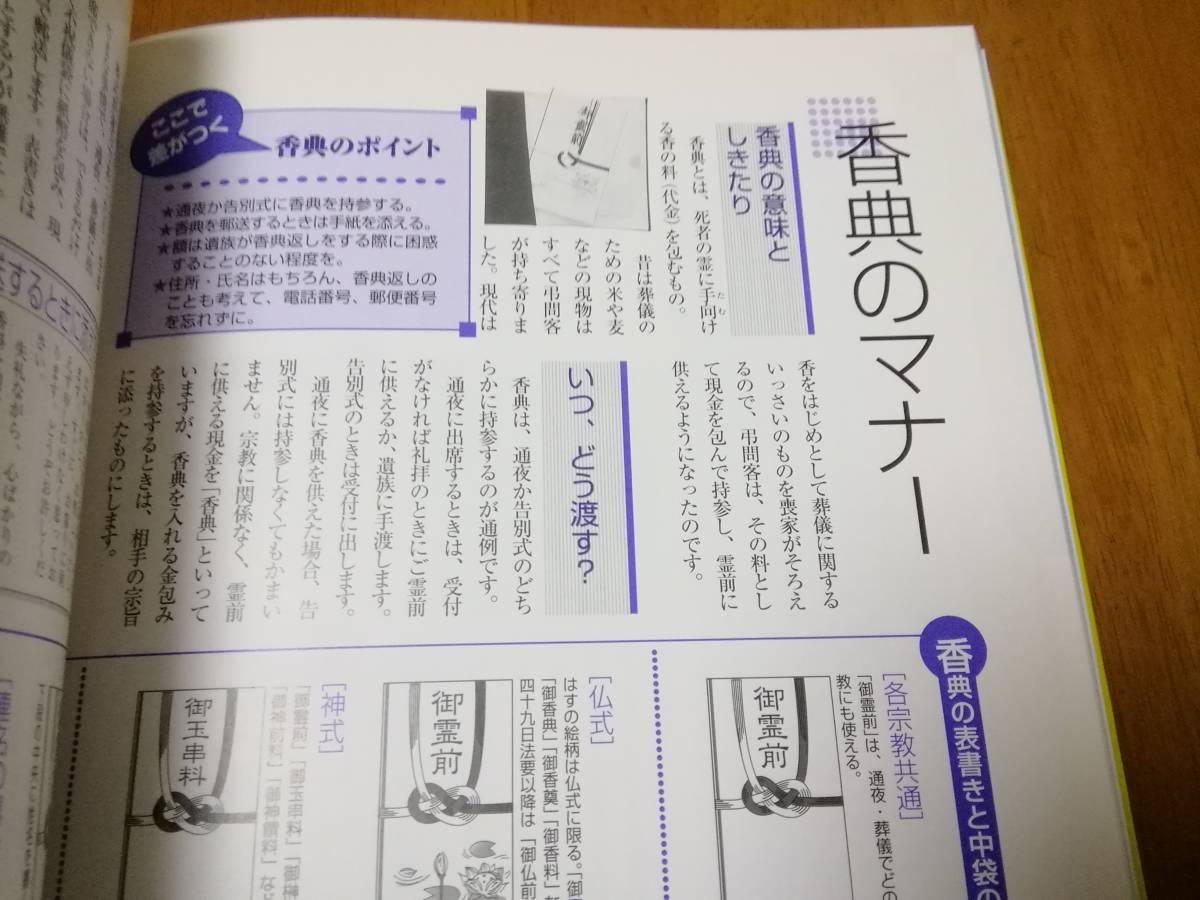 香典のマナー
香典の意味と
しきたり
香典とは、死者の霊に手向け
る香の料(代金)を包むもの。
昔は葬儀の
ための米や麦
などの現物は
すべて弔問客
が持ち寄りま
した。現代は
香をはじめとして葬儀に関する
いっさいのものを喪家がそろえ
るので、弔問客は、その料とし
て現金を包んで持参し、霊前に
供えるようになったのです。
いつ、どう渡す?
香典は、通夜か告別式のどち
らかに持参するのが通例です。
通夜に出席するときは、受付
がなければ礼拝のときにご霊前
に供えるか、遺族に手渡します。
告別式のときは受付に出します。
通夜に香典を供えた場合、告
別式には持参しなくてもかまい
ません。宗教に関係なく、霊前
に供える現金を「香典」といって
いますが、香典を入れる金包み
を持参するときは、相手の宗旨
に添ったものにします。
ここで
差がつく
香典のポイント
★通夜か告別式に香典を持参する。
★香典を郵送するときは手紙を添える。
★額は遺族が香典返しをする際に困惑
することのない程度を。
★住所・氏名はもちろん、香典返しの
ことも考えて、電話番号、郵便番号
を忘れずに。
香典の表書きと中袋の
[各宗教共通]
「御霊前」は、通夜・葬儀でどの
教にも使える。
御霊前
[仏式]
はすの絵柄は仏式に限る。「御
「御香典」「御香奠」「御香料」
四十九日法要以降は「御仏前
御霊前
[神式]
「御霊前」「御玉串料」「御榊
「御神前料」「御神饌料」など
御玉串料